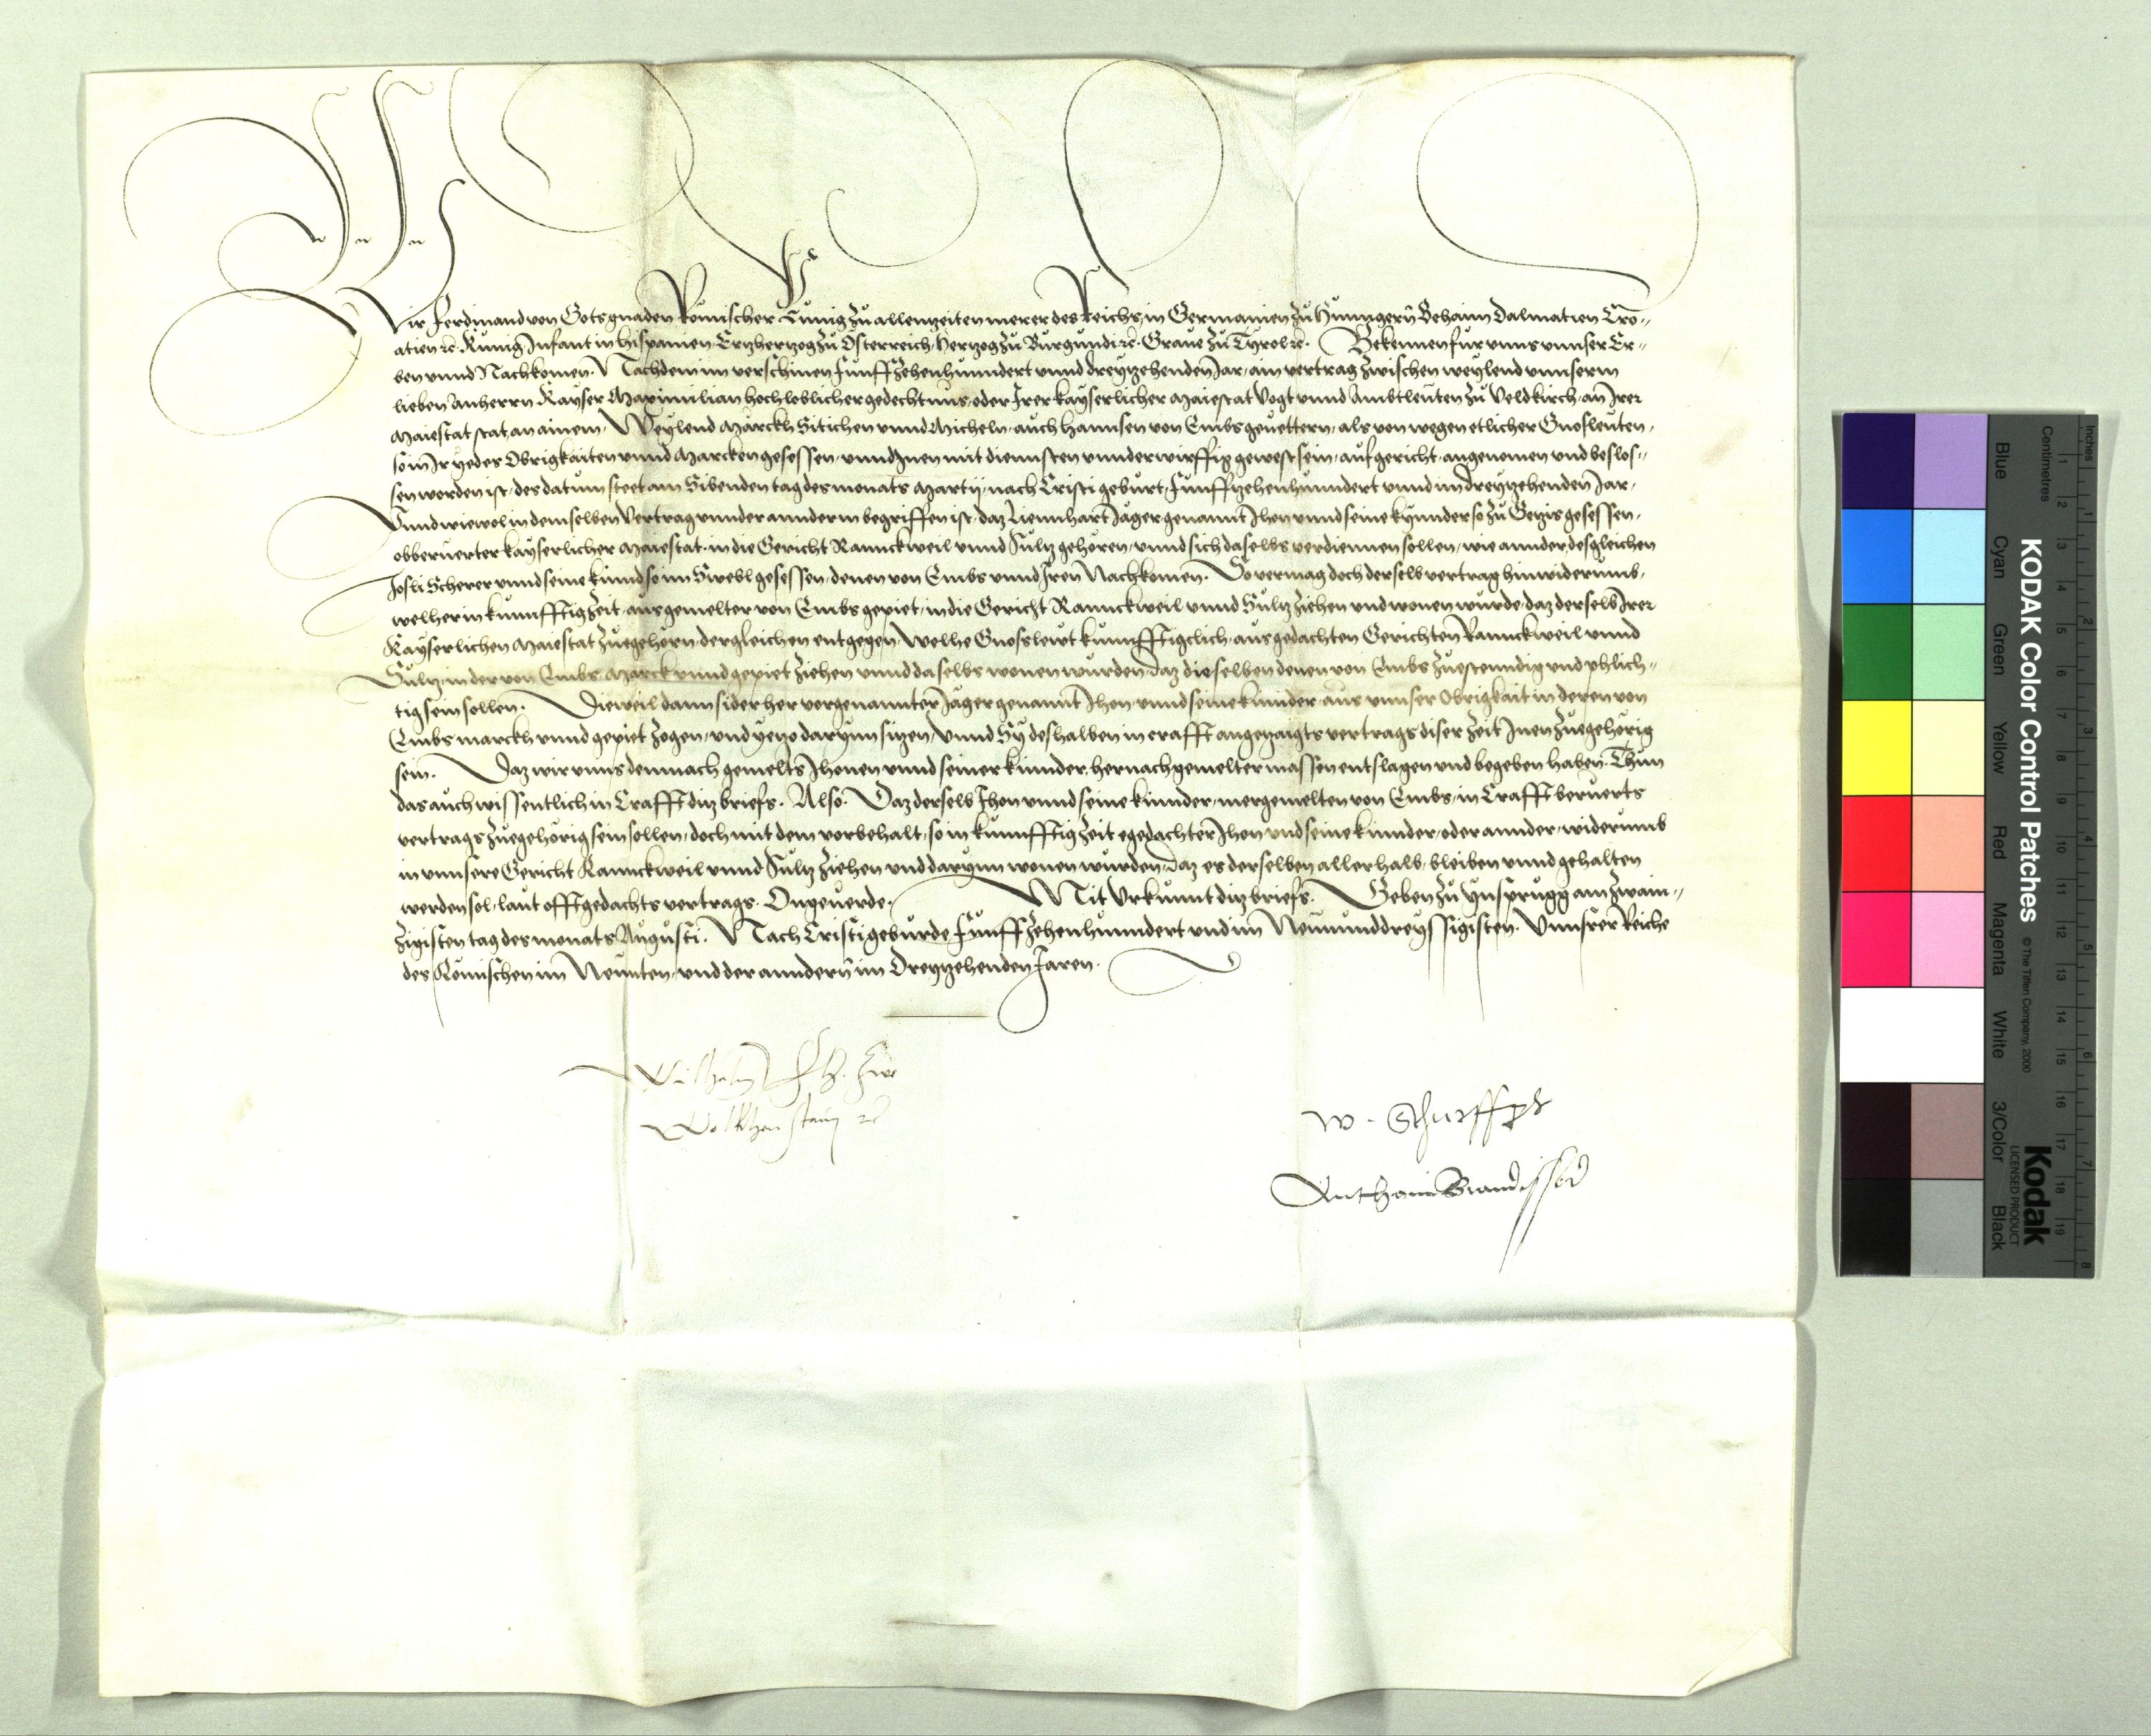 Wir Ferdinand von Gots gnaden Römischer Kunig zu allen zeiten merer des Reichs, in Germanien zu Hungern Behaim Dalmatien Cro-
atien ꝛc. Kunig Infant in Hispanien, Ertzhertzog zu Österreich, Hertzog zu Burgundi ꝛc. Graue zu Tyrol ꝛc. Bekennen fur vnns vnnser Er-
ben vnnd Nachkomen. Nachdem im verschinen Funffzehenhunndert vnnd dreytzehenden Jar, ain vertrag zwischen weylend vnnserm
lieben Anherrn Kayser Maximilian hochloblicher gedechtnus, oder Irer kayserlicher Maiestat Vogt vnnd Ambtleuten zu Veldkirch, an Irer
Maiestat stat an ainem, Weylend Marckh Sitichen vnnd Micheln, auch Hannsen von Embs geuettern, als von wegen etlicher Gnosleuten,
so in Ir yedes Obrigkaiten vnnd Marcken gesessen, vnnd Inen mit diennsten vnnderwirffig gewest sein, aufgericht, angenomen vnd beslos-
sen worden ist, des datum steet am Sibenden tag des monats Martij, nach Cristi geburt, Funffzehenhunndert vnnd im dreytzehenden Jar,
Vnnd wiewol in demselben Vertrag vnnder annderm begriffen ist, daz Liennhart Jäger genannt Ihon vnnd seine kynnder so zu Getzis gesessen,
obberuerter kayserlicher Maiestat, in die Gericht Rannckweil vnnd Sultz gehören, vnnd sich daselbs verdiennen sollen, wie annder desgleichen
Josli Scherer vnnd seine kinnd so im Swebl gesessen, denen von Embs vnnd Iren Nachkomen. So vermag doch derselb vertrag hinwiderumb,
welher in kunnfftig zeit, aus gemelter von Embs gepiet, in die Gericht Rannckweil vnnd Sultz ziehen vnd wonen wurde, daz derselb Irer
Kayserlichen Maiestat zuegehörn, dergleichen entgegen, Welhe Gnosslewt kunnfftigclich, aus gedachten Gerichten Rannckweil vnnd
Sultz, in der von Embs Marck vnnd gepiet ziehen vnnd daselbs wonen wurden, Daz dieselben denen von Embs zuestenndig vnd phlich-
tig sein sollen. Dieweil dann sider her vorgenannter Jäger genannt Ihon, vnnd seine kinnder, aus vnnser Obrigkait in deren von
Embs marckh vnnd gepiet zogen, vnd yetzo darynn sitzen, Vnnd Sy deshalben in crafft angezaigts vertrags diser zeit Inen zuegehörig
sein. Daz wir vnns demnach gemelts Ihonen vnnd seiner kinnder, hernachgemelter massen entslagen vnd begeben haben. Thun
das auch wissentlich in Crafft ditz briefs. Also. Daz derselb Ihon vnnd seine kinnder, mergemelten von Embs, in Crafft beruerts
vertrags zuegehörig sein sollen, doch mit dem vorbehalt, so in kunnfftig zeit egedachter Ihon vnd seine kinnder, oder annder, widerumb
in vnnsere Gericht Rannckweil vnnd Sultz ziehen vnd darynn wonen wurden, Daz es derselben allerhalb, bleiben vnnd gehalten
werden sol, laut offtgedachts vertrags. Ongeuerde. Mit Vrkunnt ditz briefs. Geben zu Ynsprugg am zwain-
zigisten tag des monats Augusti. Nach Cristi geburde, Funffzehenhunndert vnd im Neununddreyssigisten. Vnnsrer Reiche
des Römischen im Neunten, vnd der anndern im Dreytzehenden Jaren.
Wilhelm Fh. zw
Wolkhenstain ꝛc
W. Schurff
Anthoni Brandisser